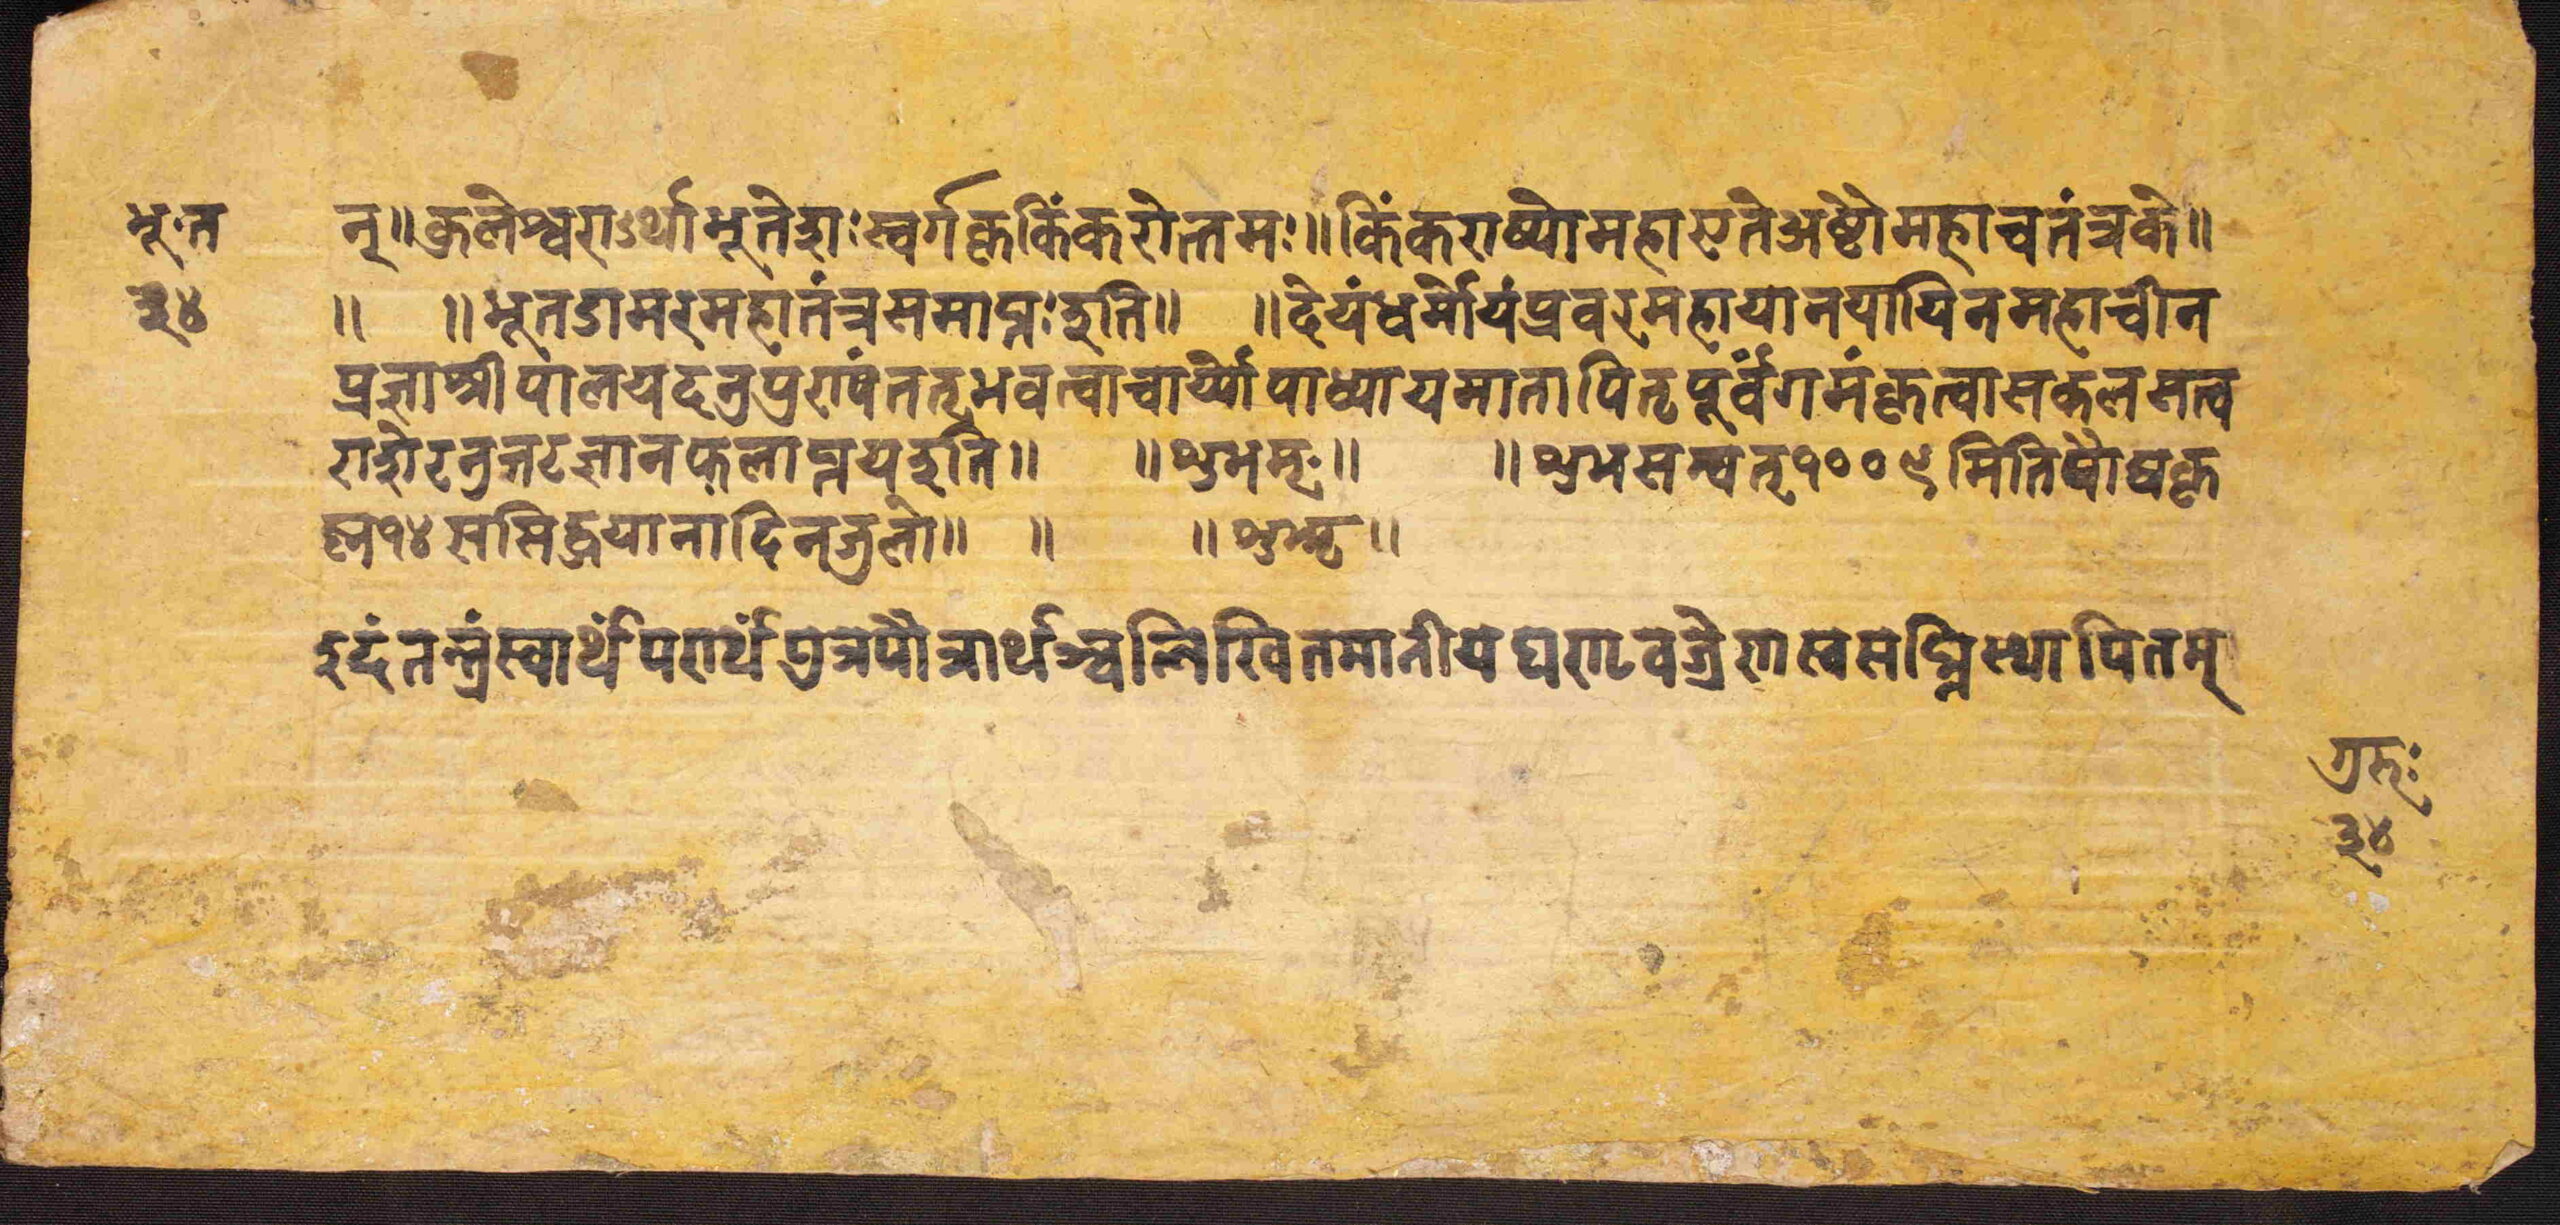 भू॰त
३४
न्॥क्रलेश्वराऽर्थाभूतेशः स्वर्गकृकिंकरोत्तमः॥किंकराष्यौमहा एतेअष्टौमहाचतंत्रके॥
॥ ॥भूतडामरमहातंत्रसमाप्तः इति॥ ॥देयंधर्मोयंप्रवरमहायानयायिनमहाचीन
प्रज्ञाश्रीपालयदनुपुराषंततृभवत्वाचार्य्योपाध्यायमातापितृपूर्वंगमंकृत्वासकलसत्व
ज्ञानफलाप्नय् इति॥ ॥शुभम्ः॥ ॥शुभसम्वत्१००९मितिपौषकृ
ष्न१४ ॥ ॥ ॥शुभम्॥
इदंतन्त्रंस्वार्थंपरार्थंपुत्रपौत्रार्थञ्चलिखितमानीय स्वसद्मिस्थापितम्
गुरुः
३४